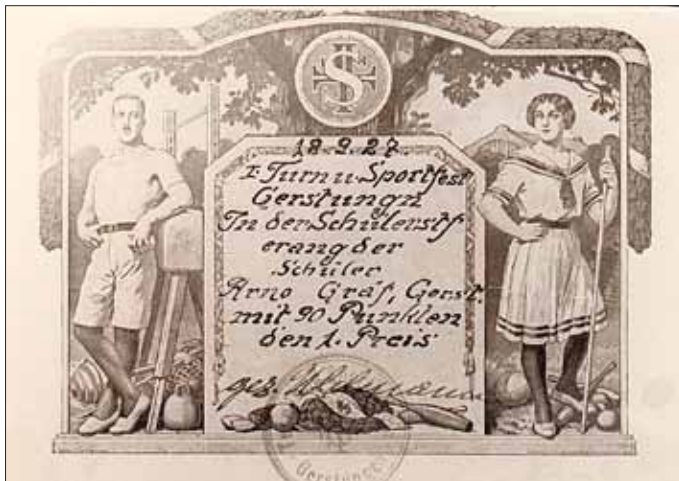 18.9.27
I. Turn u. Sportfest
Gerstungn
In der Schülerstf
erang der
Schüler
Arno Gräf, Gerst.
mit 90 Punkten
den 1. Preis
gez.
Gerstungen